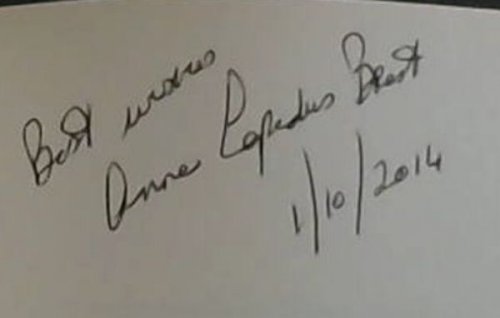 Best wishes
Anne Lapedus Brest
1/10/2014